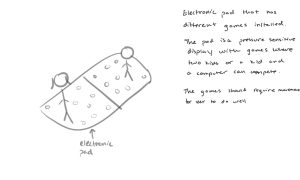 Electronic pad that has
different games installed
The pad is a pressure sensitive
display with games where
two kids or a kid and
a computer can compete.
The games should require movement
to do well
electronic
pad